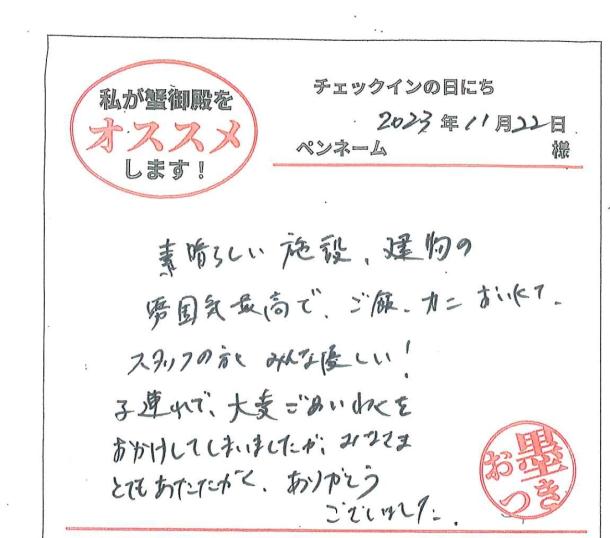 私が蟹御殿を
オススメ
します！
チェックインの日にち
2023年11月22日
ペンネーム 様
素晴らしい施設、建物の
雰囲気最高で、ご飯、カニおいしくて、
スタッフの方もみんな優しい！
子連れで、大変ごめいわくを
おかけしてしまいましたが、みなさま
とてもあたたかく、ありがとう
ございました。
お墨つき